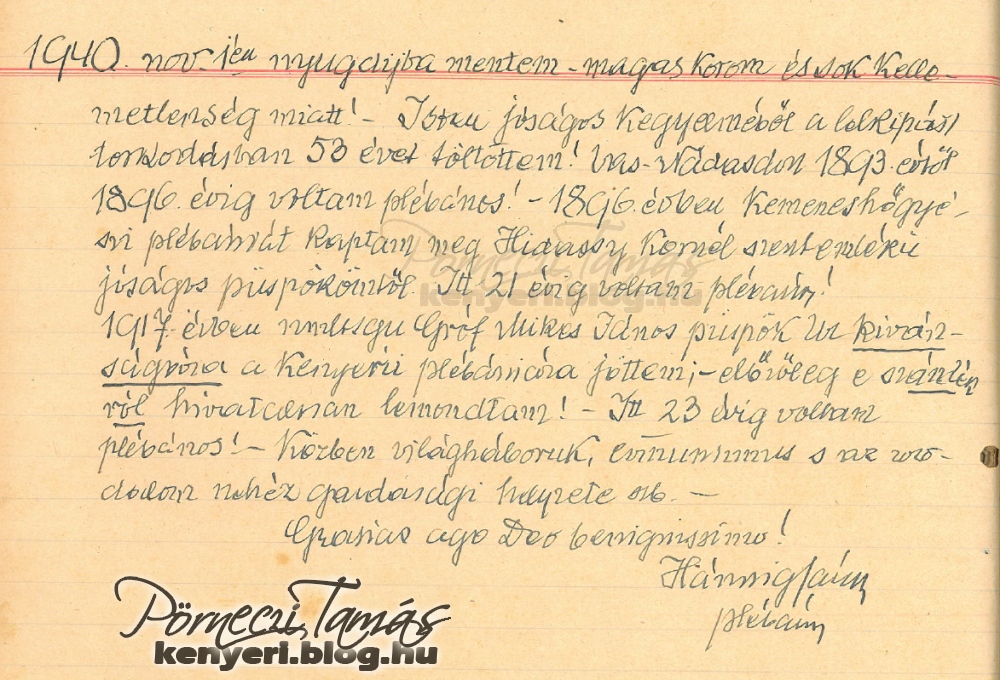 1940. nov. 1én nyugdijba mentem - magas korom és sok kelle-
metlenség miatt! - Isten jóságos kegyelméből a lelkipásztori
53 évet töltöttem! Vas-Nádasdon 1893. évtől
1896. évig voltam plébános! - 1896. évben Kemeneshőgyé-
szi plébániát kaptam meg Hidassy Kornél szentemlékű
jóságos püspökömtől. Itt 21 évig voltam plébános!
1917. évben Gróf Mikes János püspök Ur kiván-
ságára a Kenyerii plébániára jöttem; - előzőleg e szándék
ról hivatalosan lemondtam! - Itt 23 évig voltam
plébános! - Közben világháboruk, s az uro-
dalom nehéz gazdasági helyzete stb. -
Gratias ago Deo benignissimo!
Hánnig János
plébános
Pörneczi Tamás
kenyeri.blog.hu
Pörneczi Tamás
kenyeri.blog.hu